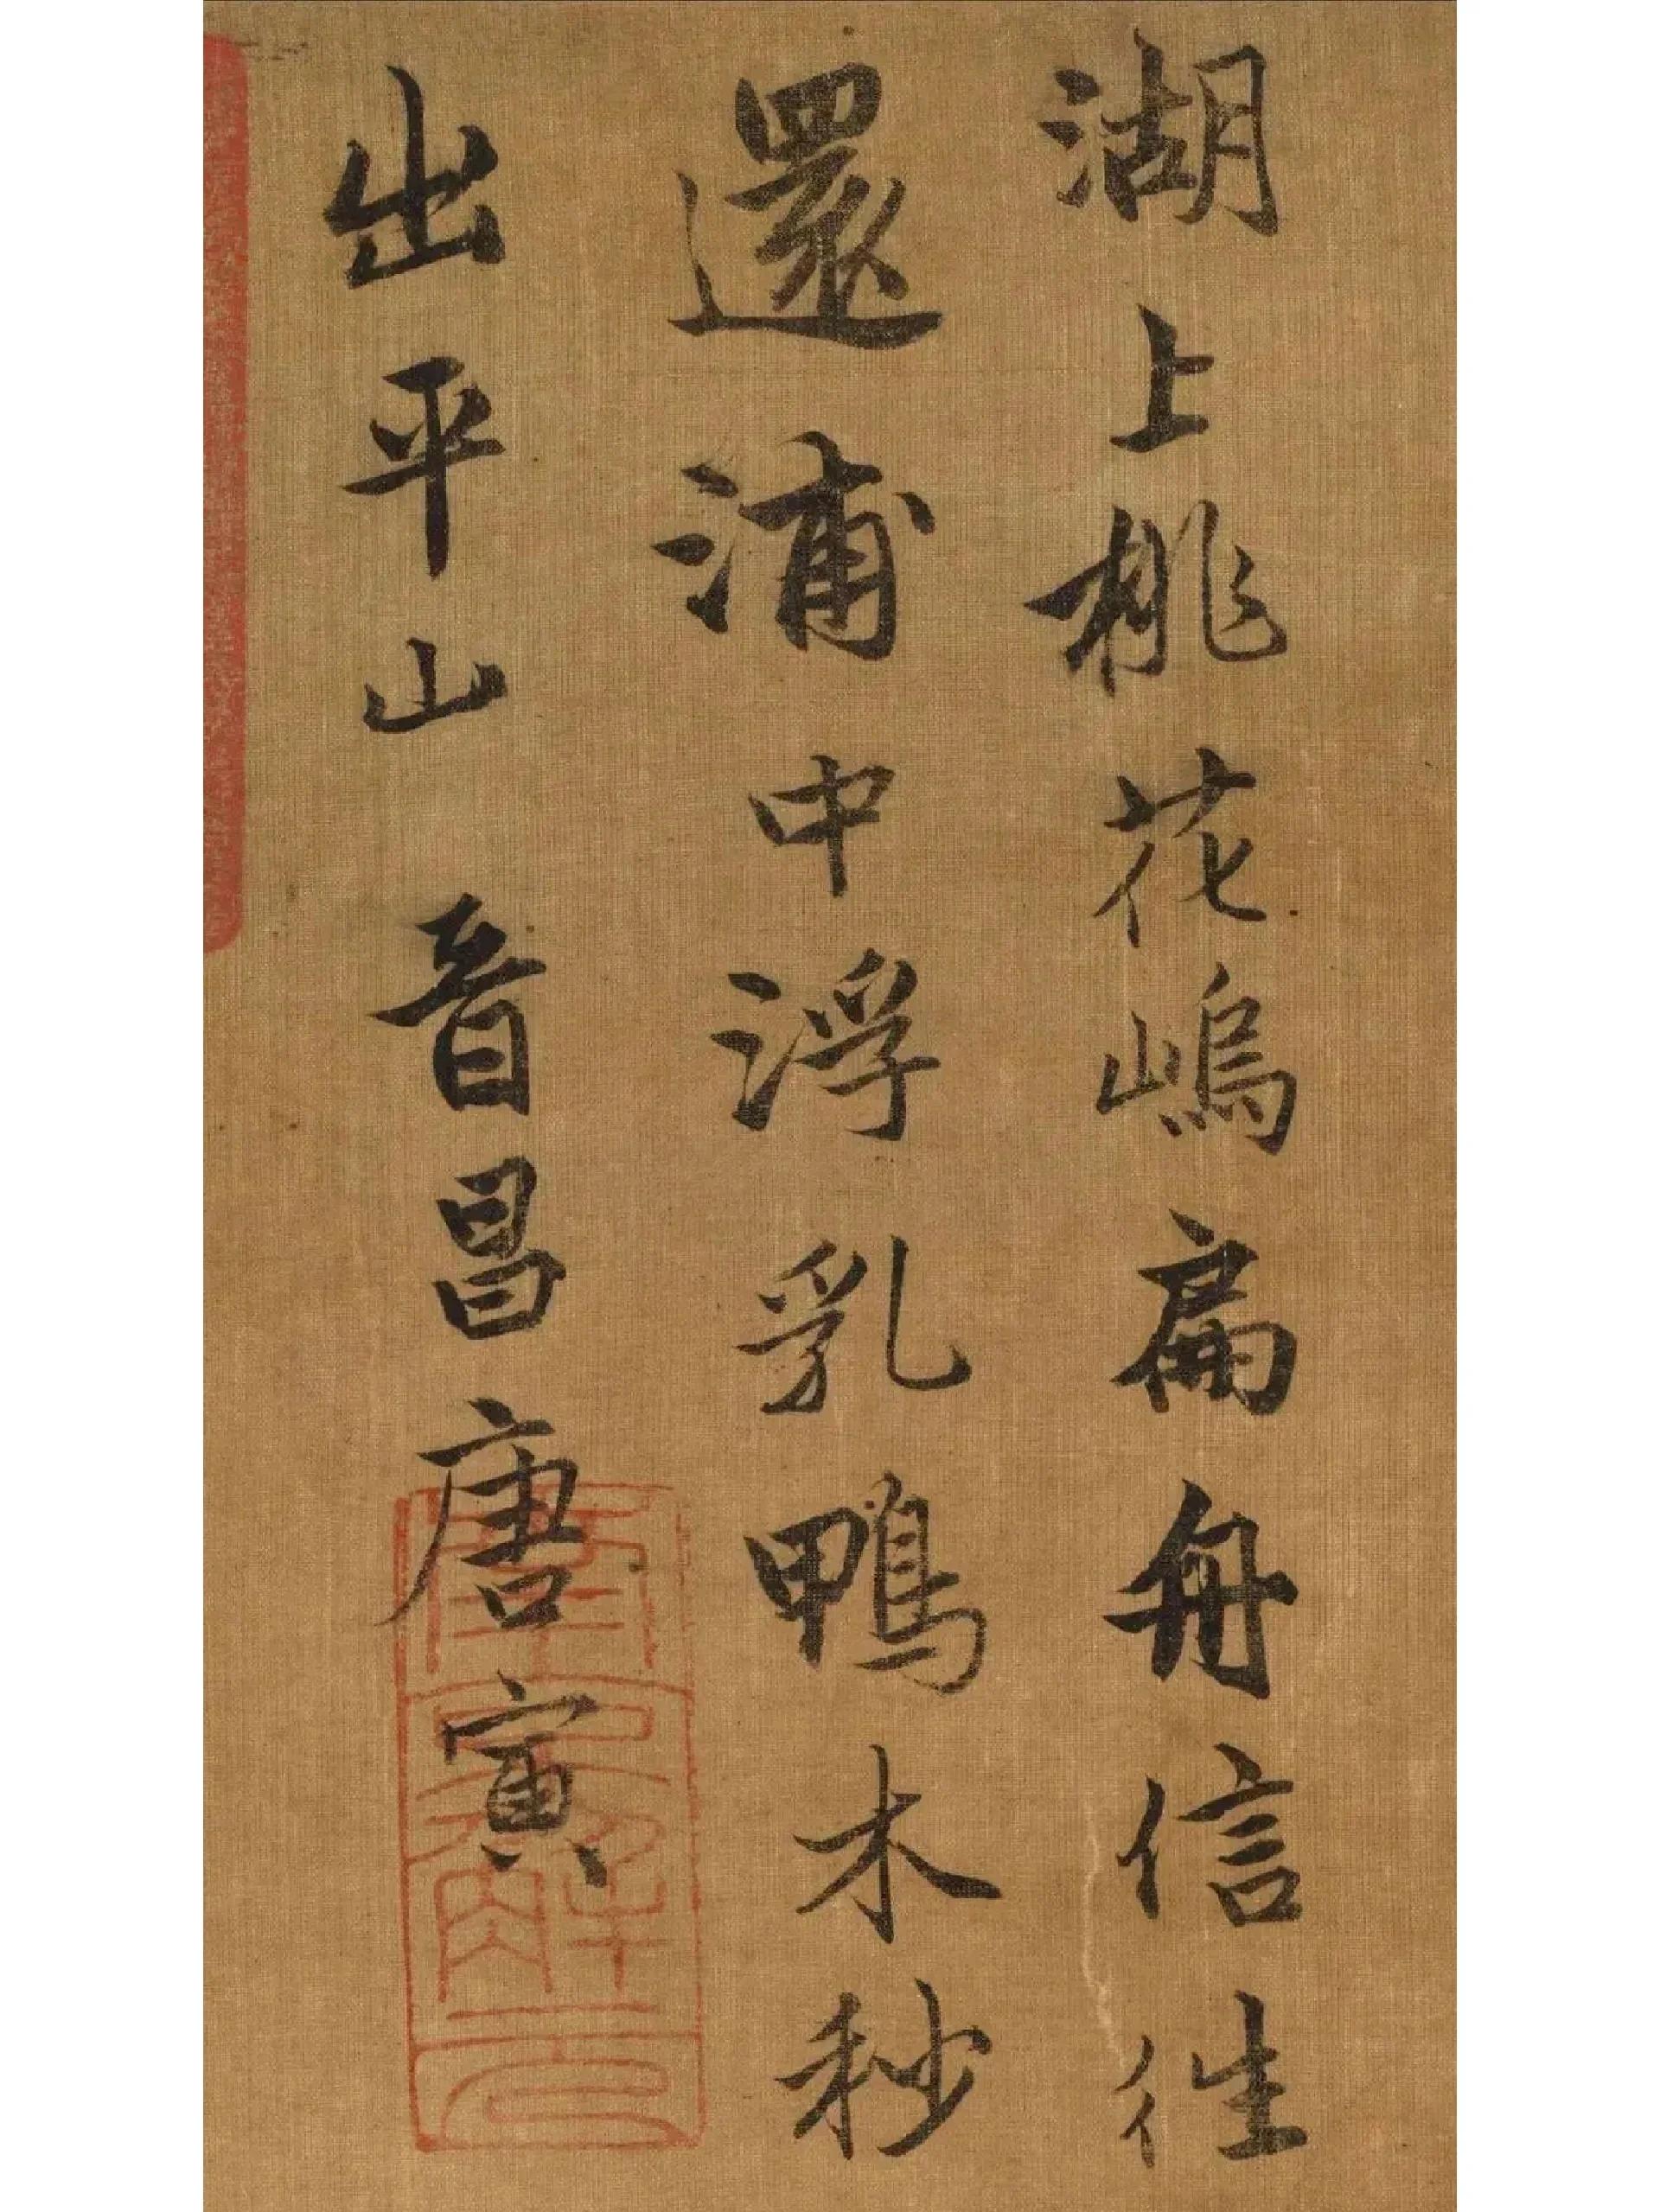 湖上桃花嶋扁舟信往
還浦中浮乳鴨木秒
出平山晉昌唐寅